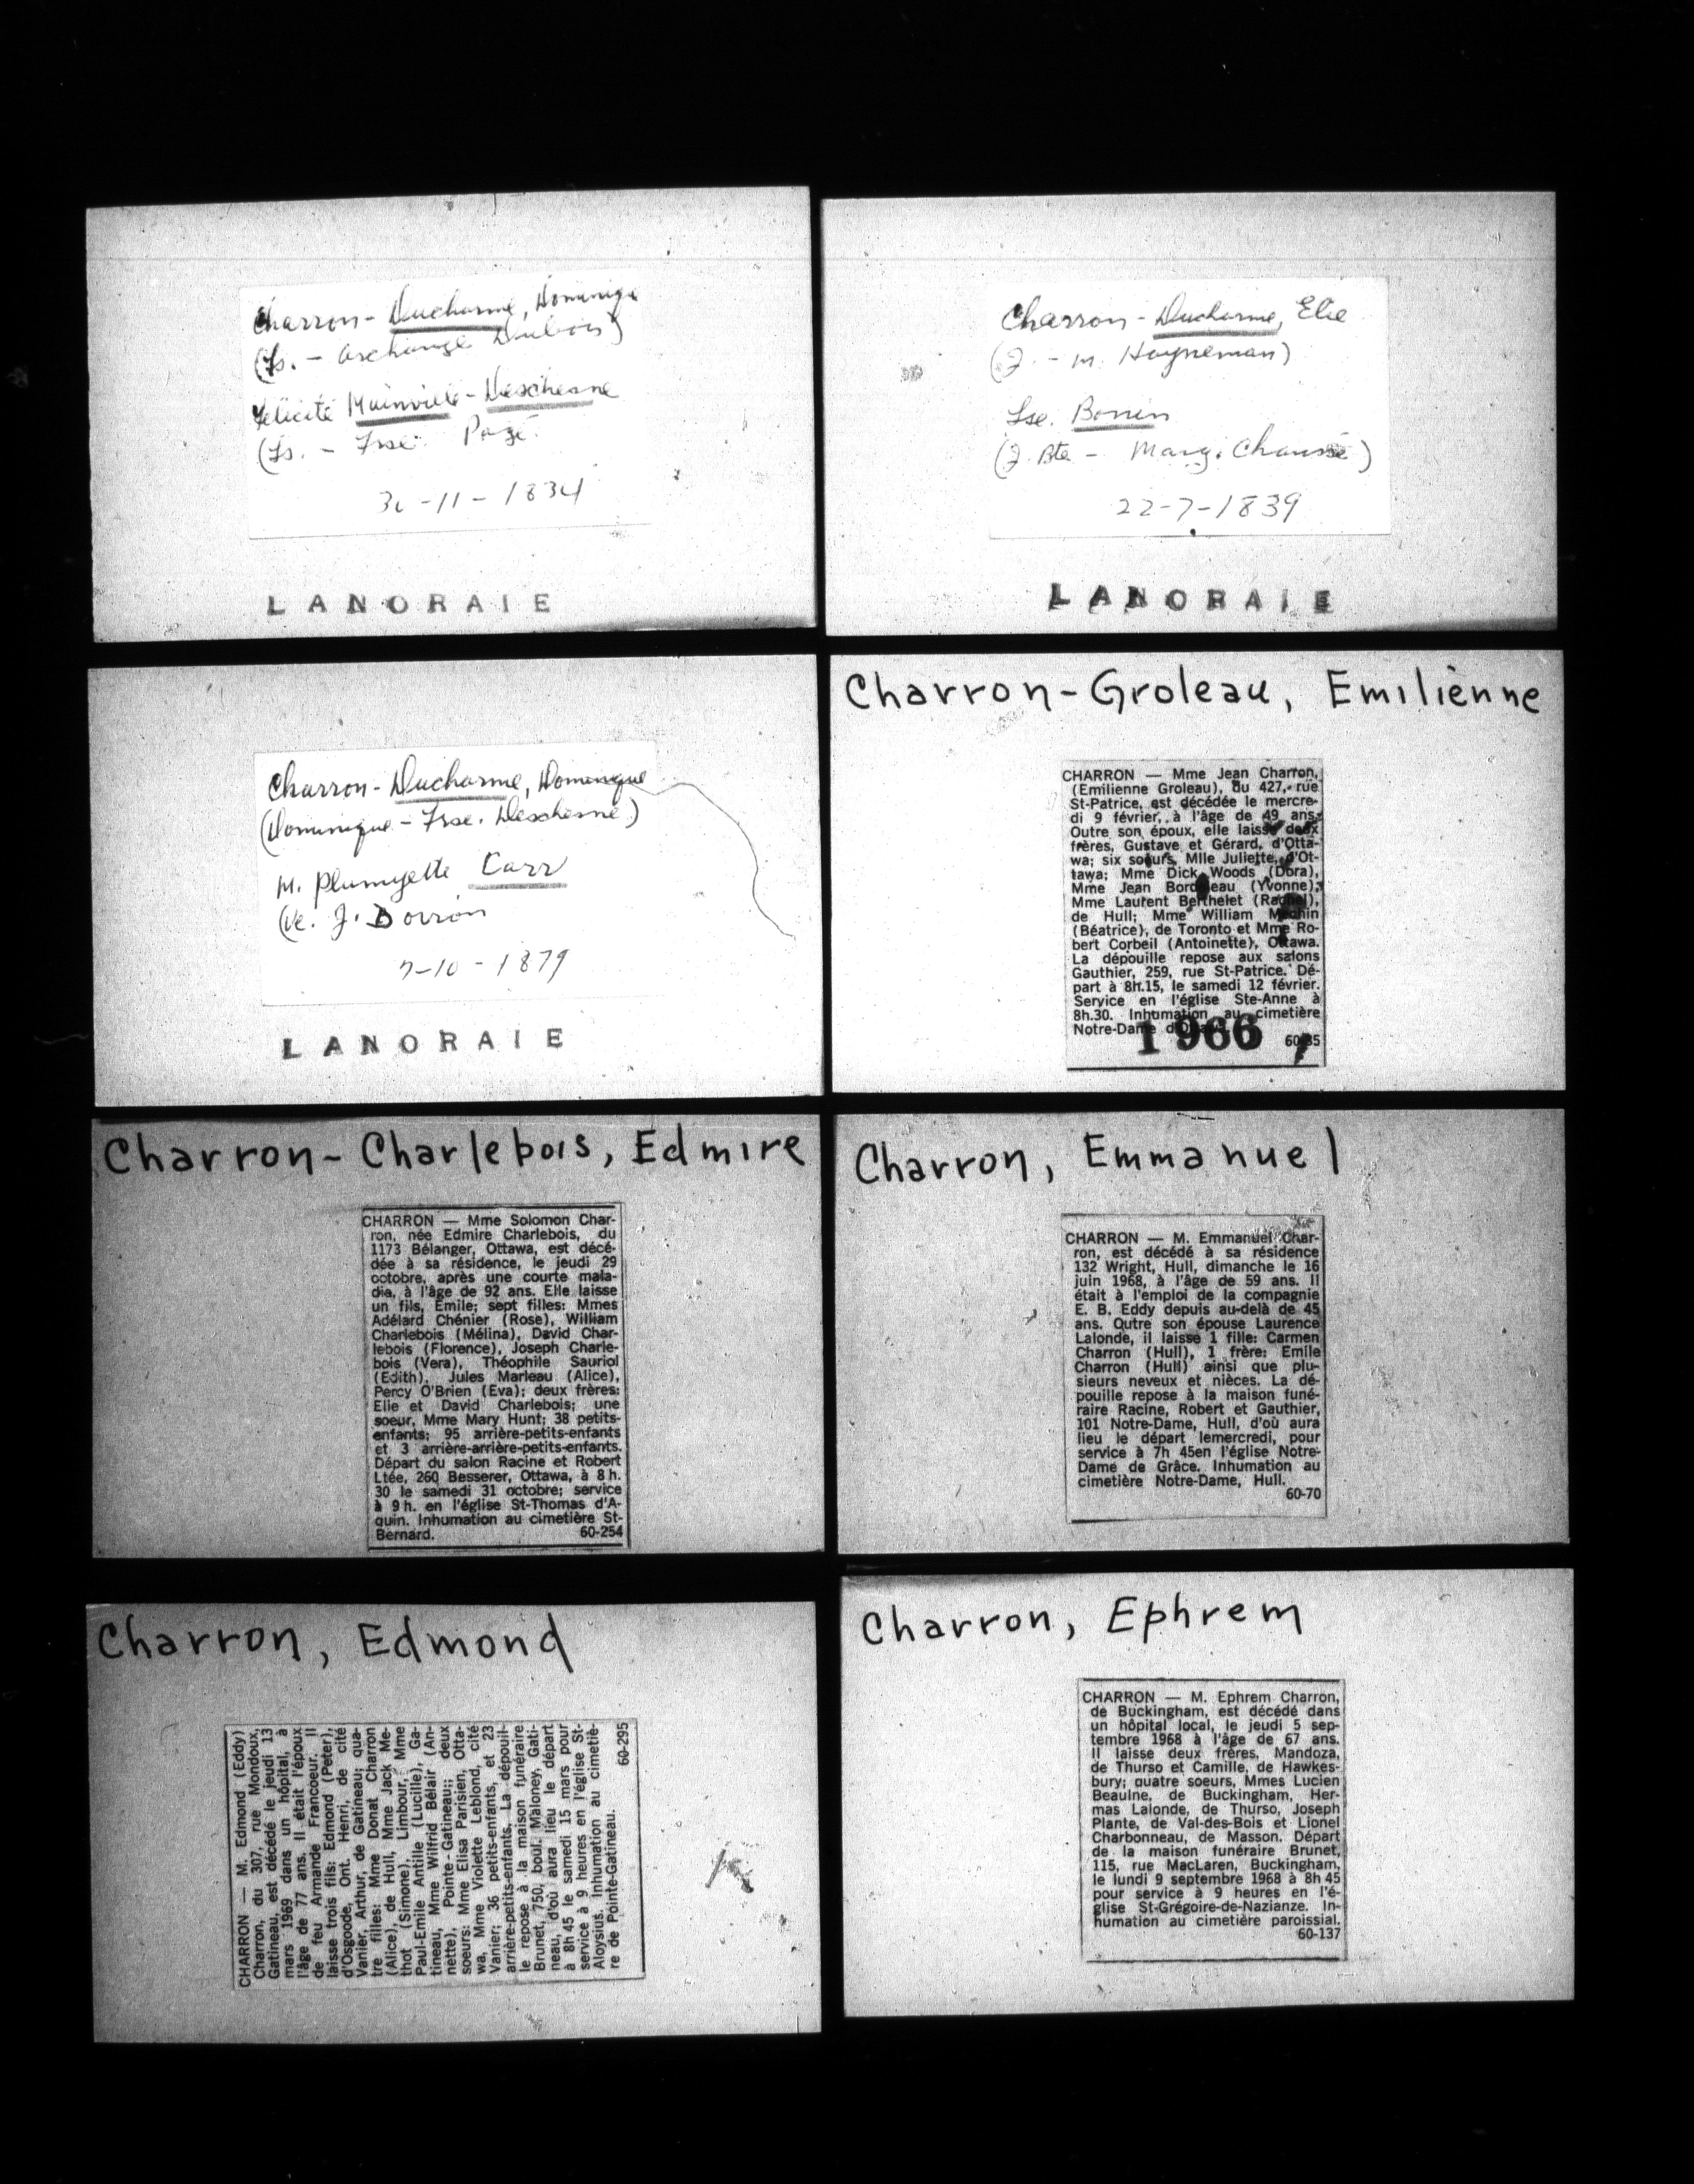 Charron - Ducharme, Dominique
(Fs. - Archange Dubois)
Félicité Mainville - Deschesne
(Fs. - Frse. Pagé.
-11-1834
LANORAIE
Charron - Ducharme, Elie
(J. - M. Hayneman)
Lse. Bonin
(J. Bte - Marg. Chaussé)
22-7-1839
LANORAIE
Charron - Ducharme, Dominique
(Dominique - Frse. Deschesne)
M. Plumyette Carr
(Ve. J. Dorrion
7-10-1879
LANORAIE
Charron-Groleau, Emilienne
CHARRON — Mme Jean Charron,
(Emilienne Groleau), du 427, rue
St-Patrice, est décédée le mercre-
di 9 février, à l'âge de 49 ans.
Outre son époux, elle laisse deux
frères, Gustave et Gérard, d'Otta-
wa; six soeurs, Mlle Juliette, d'Ot-
tawa; Mme Dick Woods (Dora),
Mme Jean Bordeleau (Yvonne),
Mme Laurent Berthelet (Rachel),
de Hull; Mme William
(Béatrice), de Toronto et Mme Ro-
bert Corbeil (Antoinette), Ottawa.
La dépouille repose aux salons
Gauthier, 259, rue St-Patrice. Dé-
part à 8h.15, le samedi 12 février.
Service en l'église Ste-Anne à
8h.30. Inhumation au cimetière
Notre-Dame d'Ottawa.
1966
Charron-Charlebois, Edmire
CHARRON — Mme Solomon Char-
ron, née Edmire Charlebois, du
1173 Bélanger, Ottawa, est décé-
dée à sa résidence, le jeudi 29
octobre, après une courte mala-
die, à l'âge de 92 ans. Elle laisse
un fils, Emile; sept filles: Mmes
Adélard Chénier (Rose), William
Charlebois (Mélina), David Char-
lebois (Florence), Joseph Charle-
bois (Vera), Théophile Sauriol
(Edith), Jules Marleau (Alice),
Percy O'Brien (Eva); deux frères:
Elie et David Charlebois; une
soeur, Mme Mary Hunt; 38 petits-
enfants; 95 arrière-petits-enfants
et 3 arrière-arrière-petits-enfants.
Départ du salon Racine et Robert
Ltée, 260 Besserer, Ottawa, à 8 h.
30 le samedi 31 octobre; service
à 9 h. en l'église St-Thomas d'A-
quin. Inhumation au cimetière St-
Bernard. 60-254
Charron, Emmanuel
CHARRON — M. Emmanuel Char-
ron, est décédé à sa résidence
132 Wright, Hull, dimanche le 16
juin 1968, à l'âge de 59 ans. Il
était à l'emploi de la compagnie
E. B. Eddy depuis au-delà de 45
ans. Outre son épouse Laurence
Lalonde, il laisse 1 fille: Carmen
Charron (Hull), 1 frère: Emile
Charron (Hull) ainsi que plu-
sieurs neveux et nièces. La dé-
pouille repose à la maison funé-
raire Racine, Robert et Gauthier,
101 Notre-Dame, Hull, d'où aura
lieu le départ lemercredi, pour
service à 7h 45en l'église Notre-
Dame de Grâce. Inhumation au
cimetière Notre-Dame, Hull.
60-70
Charron, Edmond
CHARRON — M. Edmond (Eddy)
Charron, du 307, rue Mondoux,
Gatineau, est décédé le jeudi 13
mars 1969 dans un hôpital, à
l'âge de 77 ans. Il était l'époux
de feu Armande Francoeur. Il
laisse trois fils: Edmond (Peter),
d'Osgoode, Ont. Henri, de cité
Vanier, Arthur, de Gatineau; qua-
tre filles: Mme Donat Charron
(Alice), de Hull, Mme Jack Me-
thot (Simone), Limbour, Mme
Paul-Emile Antille (Lucille), Ga-
tineau, Mme Wilfrid Bélair (An-
nette), Pointe-Gatineau;; deux
soeurs: Mme Elisa Parisien, Otta-
wa, Mme Violette Leblond, cité
Vanier; 36 petits-enfants, et 23
arrière-petits-enfants. La dépouil-
le repose à la maison funéraire
Brunet, 750, boul. Maloney, Gati-
neau, d'où aura lieu le départ
à 8h 45 le samedi 15 mars pour
service à 9 heures en l'église St-
Aloysius. Inhumation au cimetiè-
re de Pointe-Gatineau.
60-295
Charron, Ephrem
CHARRON — M. Ephrem Charron,
de Buckingham, est décédé dans
un hôpital local, le jeudi 5 sep-
tembre 1968 à l'âge de 67 ans.
Il laisse deux frères, Mandoza,
de Thurso et Camille, de Hawkes-
bury; quatre soeurs, Mmes Lucien
Beaulne, de Buckingham, Her-
mas Lalonde, de Thurso, Joseph
Plante, de Val-des-Bois et Lionel
Charbonneau, de Masson. Départ
de la maison funéraire Brunet,
115, rue MacLaren, Buckingham,
le lundi 9 septembre 1968 à 8h 45
pour service à 9 heures en l'é-
glise St-Grégoire-de-Nazianze. In-
humation au cimetière paroissial.
60-137